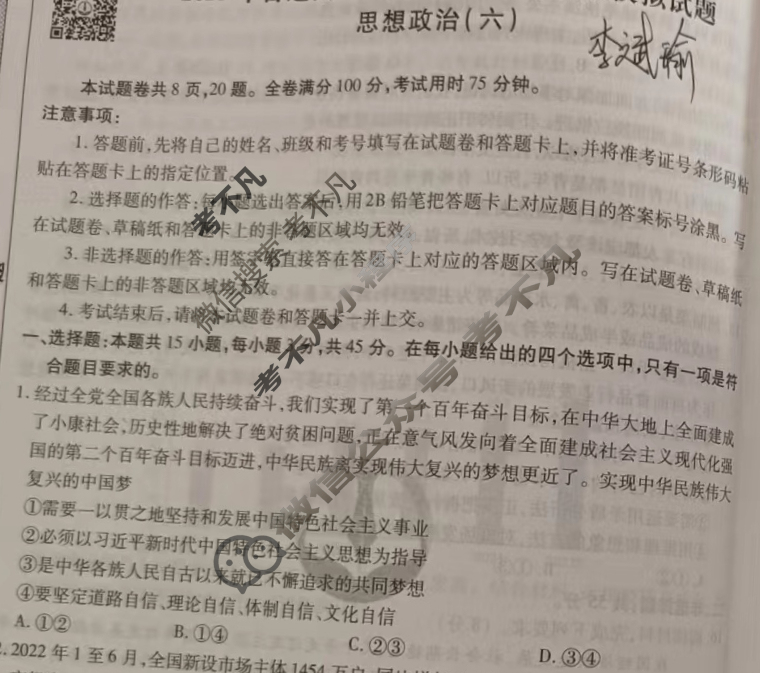 拟试题
思想政治(六)
李斌瑜
本试题卷共8页,20题。全卷满分100分,考试用时75分钟。
注意事项:
1.答题前,先将自己的姓名、班级和考号填写在试题卷和答题卡上,并将准考证号条形码粘
贴在答题卡上的指定位置。
2.选择题的作答:每 题选出答案后,用2B铅笔把答题卡上对应题目的答案标号涂黑。写
在试题卷、草稿纸和答题卡上的非答题区域均无效。
3.非选择题的作答:用签字 直接答在答题卡上对应的答题区域内。写在试题卷、草稿纸
和答题卡上的非答题区域均无效。
4.考试结束后,请将本试题卷和答题卡一并上交。
一、选择题:本题共15小题,每小题3分,共45分。在每小题给出的四个选项中,只有一项是符
合题目要求的。
1.经过全党全国各族人民持续奋斗,我们实现了第一个百年奋斗目标,在中华大地上全面建成
了小康社会,历史性地解决了绝对贫困问题,正在意气风发向着全面建成社会主义现代化强
国的第二个百年奋斗目标迈进,中华民族离实现伟大复兴的梦想更近了。实现中华民族伟大
复兴的中国梦
①需要一以贯之地坚持和发展中国特色社会主义事业
②必须以习近平新时代中国特色社会主义思想为指导
③是中华各族人民自古以来就已不懈追求的共同梦想
④要坚定道路自信、理论自信、体制自信、文化自信
A.①② B.①④ C.②③ D.③④
2.2022年1至6月,全国新设市场主体1454万户
考不凡
微信搜索考不凡
考不凡小程序
微信公众号 考不凡